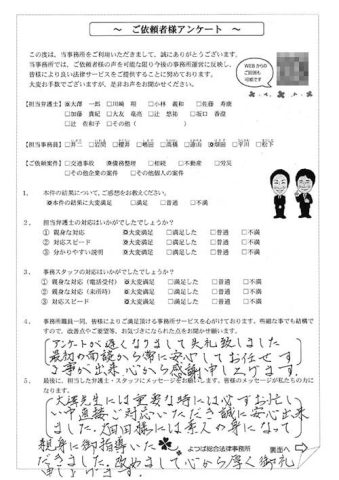 ～ ご依頼者様アンケート ～
この度は、当事務所をご利用いただきまして、誠にありがとうございます。
当事務所では、ご依頼者様の声を可能な限り今後の事務所運営に反映し、
皆様により良い法律サービスをご提供することに努めております。
大変お手数でございますが、是非お声をお聞かせください。
WEBからの
ご回答も
可能です
【担当弁護士】 大澤 一郎 □川﨑 翔 □小林 義和 □佐藤 寿康
□加藤 貴紀 □大友 竜亮 □辻 悠祐 □坂口 香澄
□辻 佐和子 □その他（ ）
【担当事務員】
【ご依頼案件】 □交通事故 債務整理 □相続 □不動産 □労災
□その他企業の案件 □その他個人の案件
1． 本件の結果について、ご感想をお教えください。
本件の結果に大変満足 □満足 □普通 □不満
2． 担当弁護士の対応はいかがでしたでしょうか？
① 親身な対応 大変満足 □満足した □普通 □不満
② 対応スピード 大変満足 □満足した □普通 □不満
③ 分かりやすい説明 大変満足 □満足した □普通 □不満
3． 事務スタッフの対応はいかがでしたでしょうか？
① 親身な対応（電話受付） 大変満足 □満足した □普通 □不満
② 親身な対応（来所時） 大変満足 □満足した □普通 □不満
③ 対応スピード 大変満足 □満足した □普通 □不満
4． 事務職員一同、皆様によりご満足頂ける事務所サービスを心がけております。些細な事でも結構で
すので、改善点やご要望等、お気づきになられた点をお聞かせ願います。
アンケートが遅くなりまして失礼致しました
最初の面談から常に安心してお任せす
る事が出来、心から感謝申し上げます。
5． 最後に、担当した弁護士・スタッフにメッセージをお願いします。皆様のメッセージが私たちの力に
なります。
大澤先生には重要な時には必ずお忙し
い中直接ご対応いただき誠に安心出来
ました。畑田様には本人の身になって
親身に御指導いた
だきました。改めまして心から厚く御礼
申し上げます。
よつば総合法律事務所
裏面へ